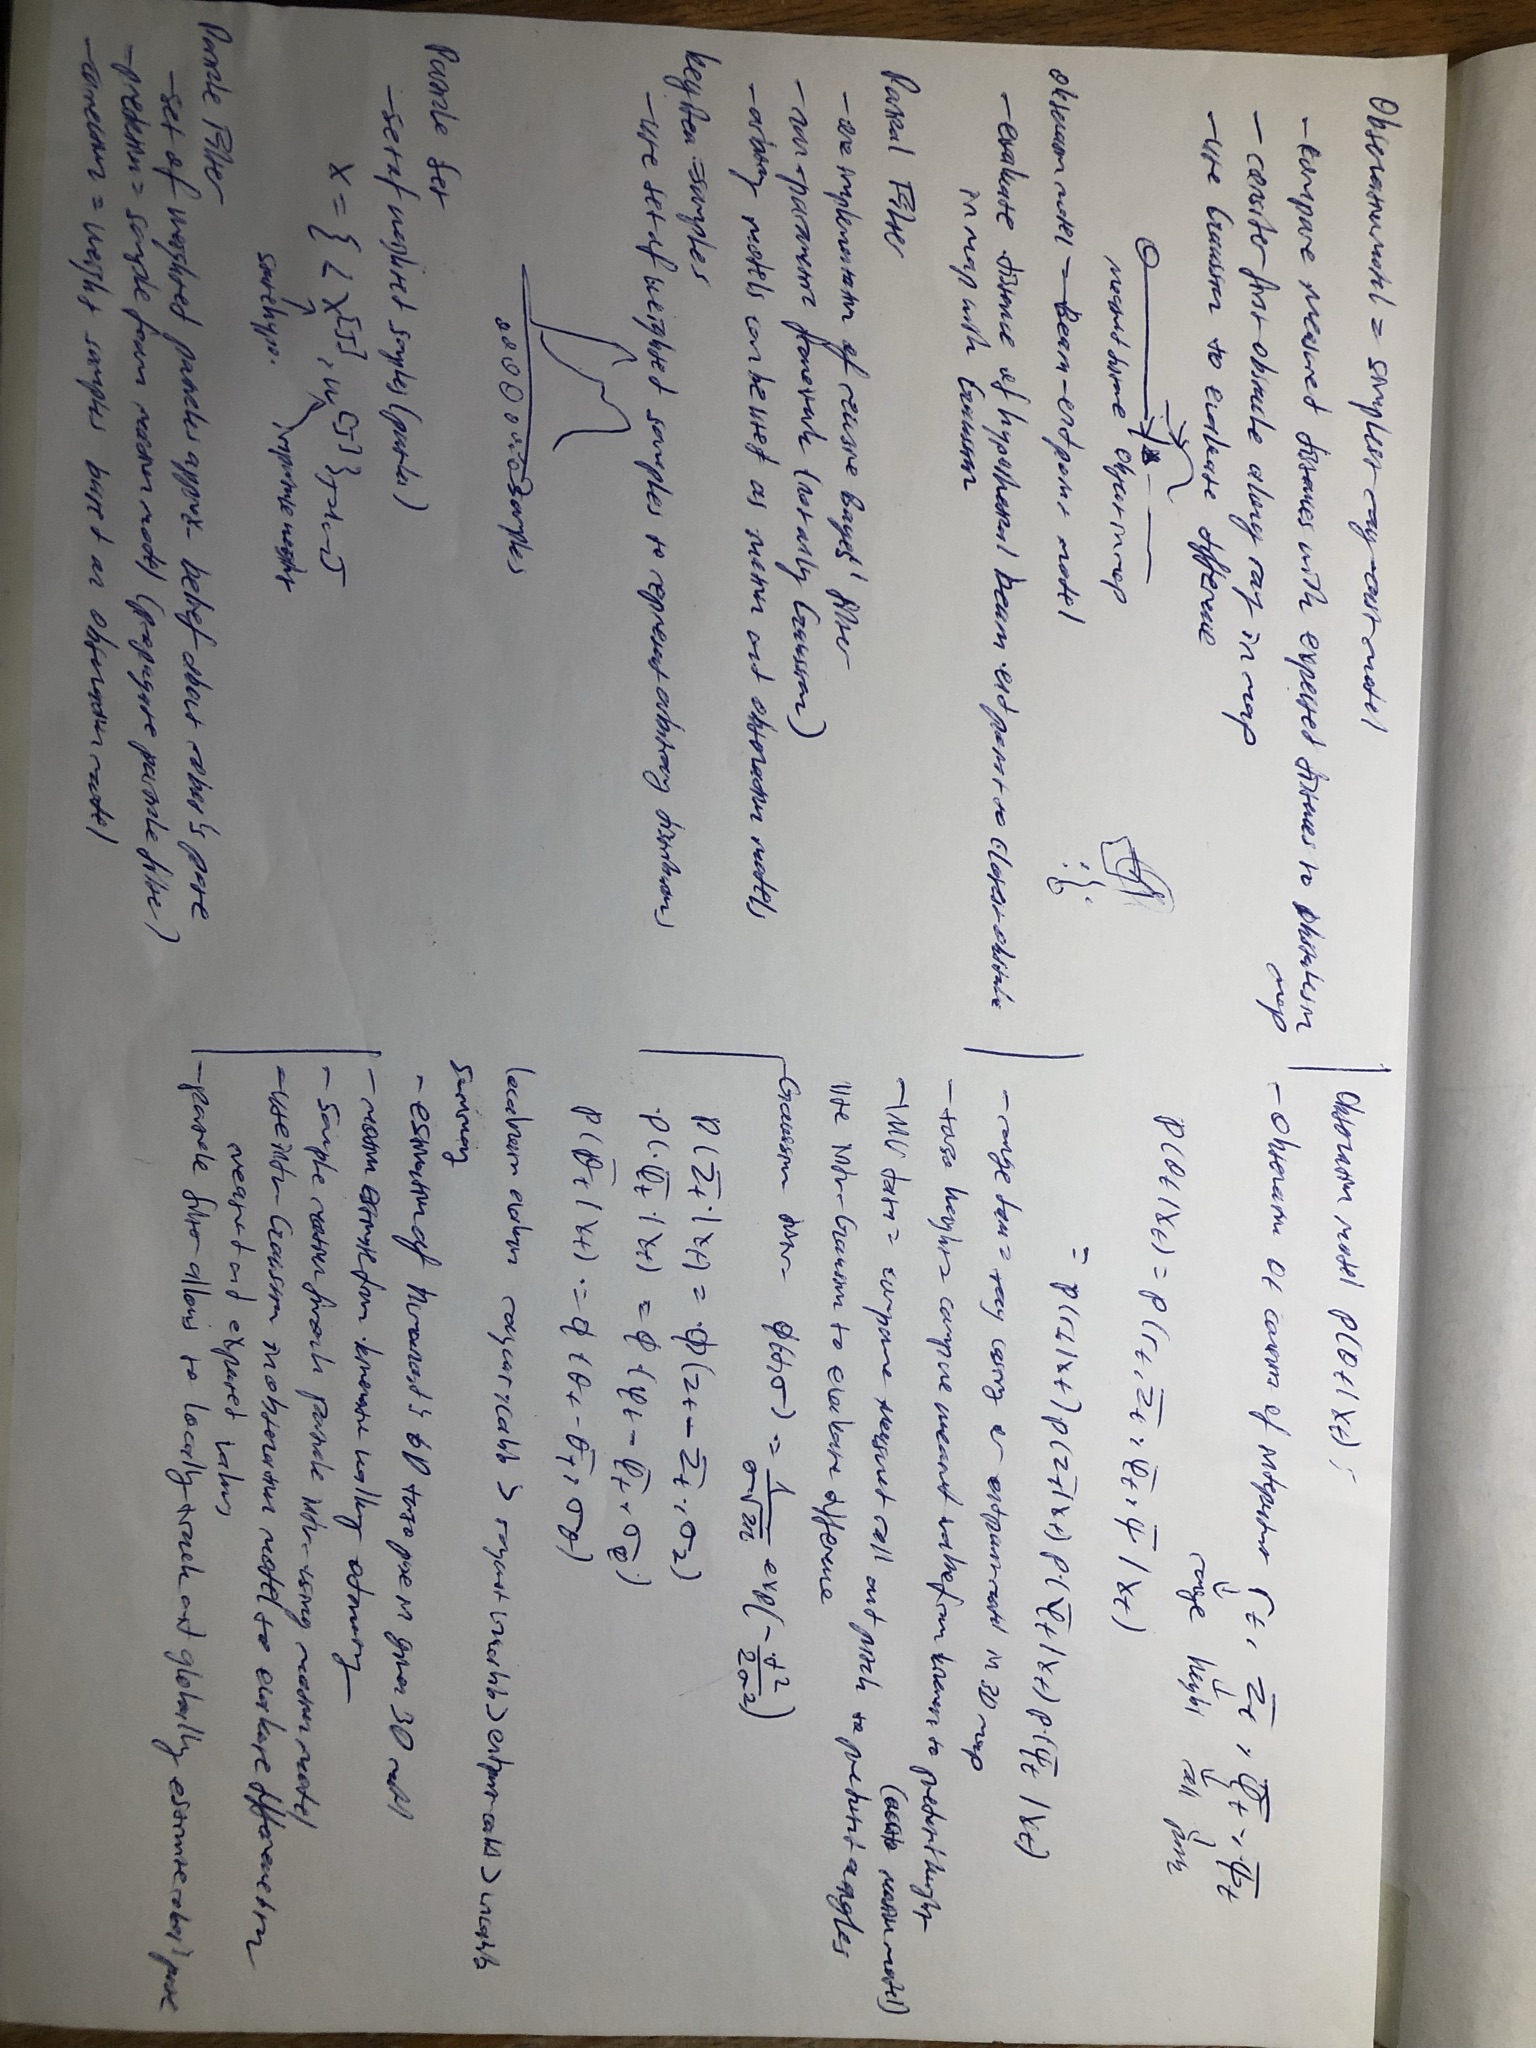 Observation model = simplest ray-cast model
- compare measured distances with expected distances to obstacles in
map
- consider first obstacle along ray in map
- use Gaussian to evaluate difference
measured distance object in map
observation model - Beam-endpoint model
- evaluate distance of hypothetical beam end point to closest obstacle
in map with Gaussian
Particle Filter
- are implementation of recursive bayes' filter
- non-parametric framework (not only Gaussian)
- arbitrary models can be used as motion and observation models
key idea = samples
- use set of weighted samples to represent arbitrary distributions
samples
Particle Set
- set of weighted samples (particles)
X = { < x[J], w[J] > } J=1...J
state hypo. importance weight
Particle Filter
- set of weighted particles approx. belief about robot's pose
- prediction = sample from motion model (propagate particle filter)
- correction = weight samples based on observation model
Observation model p(Ot | xt) :
- Observation Ot consists of independent rt, z̄t, φ̄t, ψ̄t
range height roll pitch
p(Ot | xt) = p(rt, z̄t, φ̄t, ψ̄ | xt)
= p(rt | xt) p(z̄t | xt) p(φ̄t | xt) p(ψ̄t | xt)
- range data = ray casting or endpoint model in 3D map
- torso height = compare measured value from kinematics to predicted height
(motion model)
- IMU data = compare measured roll and pitch to predicted angles
use Gaussian to evaluate difference
Gaussian φ(d, σ) = 1/σ√2π exp(-d²/2σ²)
p(z̄t | xt) = φ(zt - z̄t, σz)
p(φ̄t | xt) = φ(φt - φ̄t, σφ)
p(θ̄t | xt) = φ(θt - θ̄t, σθ)
localisation raycast >
Summary
- estimation of humanoid's 6D torso pose in given 3D model
- motion estimate from kinematic walking odometry
- sample motion for each particle using motion model
- use Gaussian in observation model to evaluate difference between
measured and expected values
- particle filter allows to locally track and globally estimate robot's pose